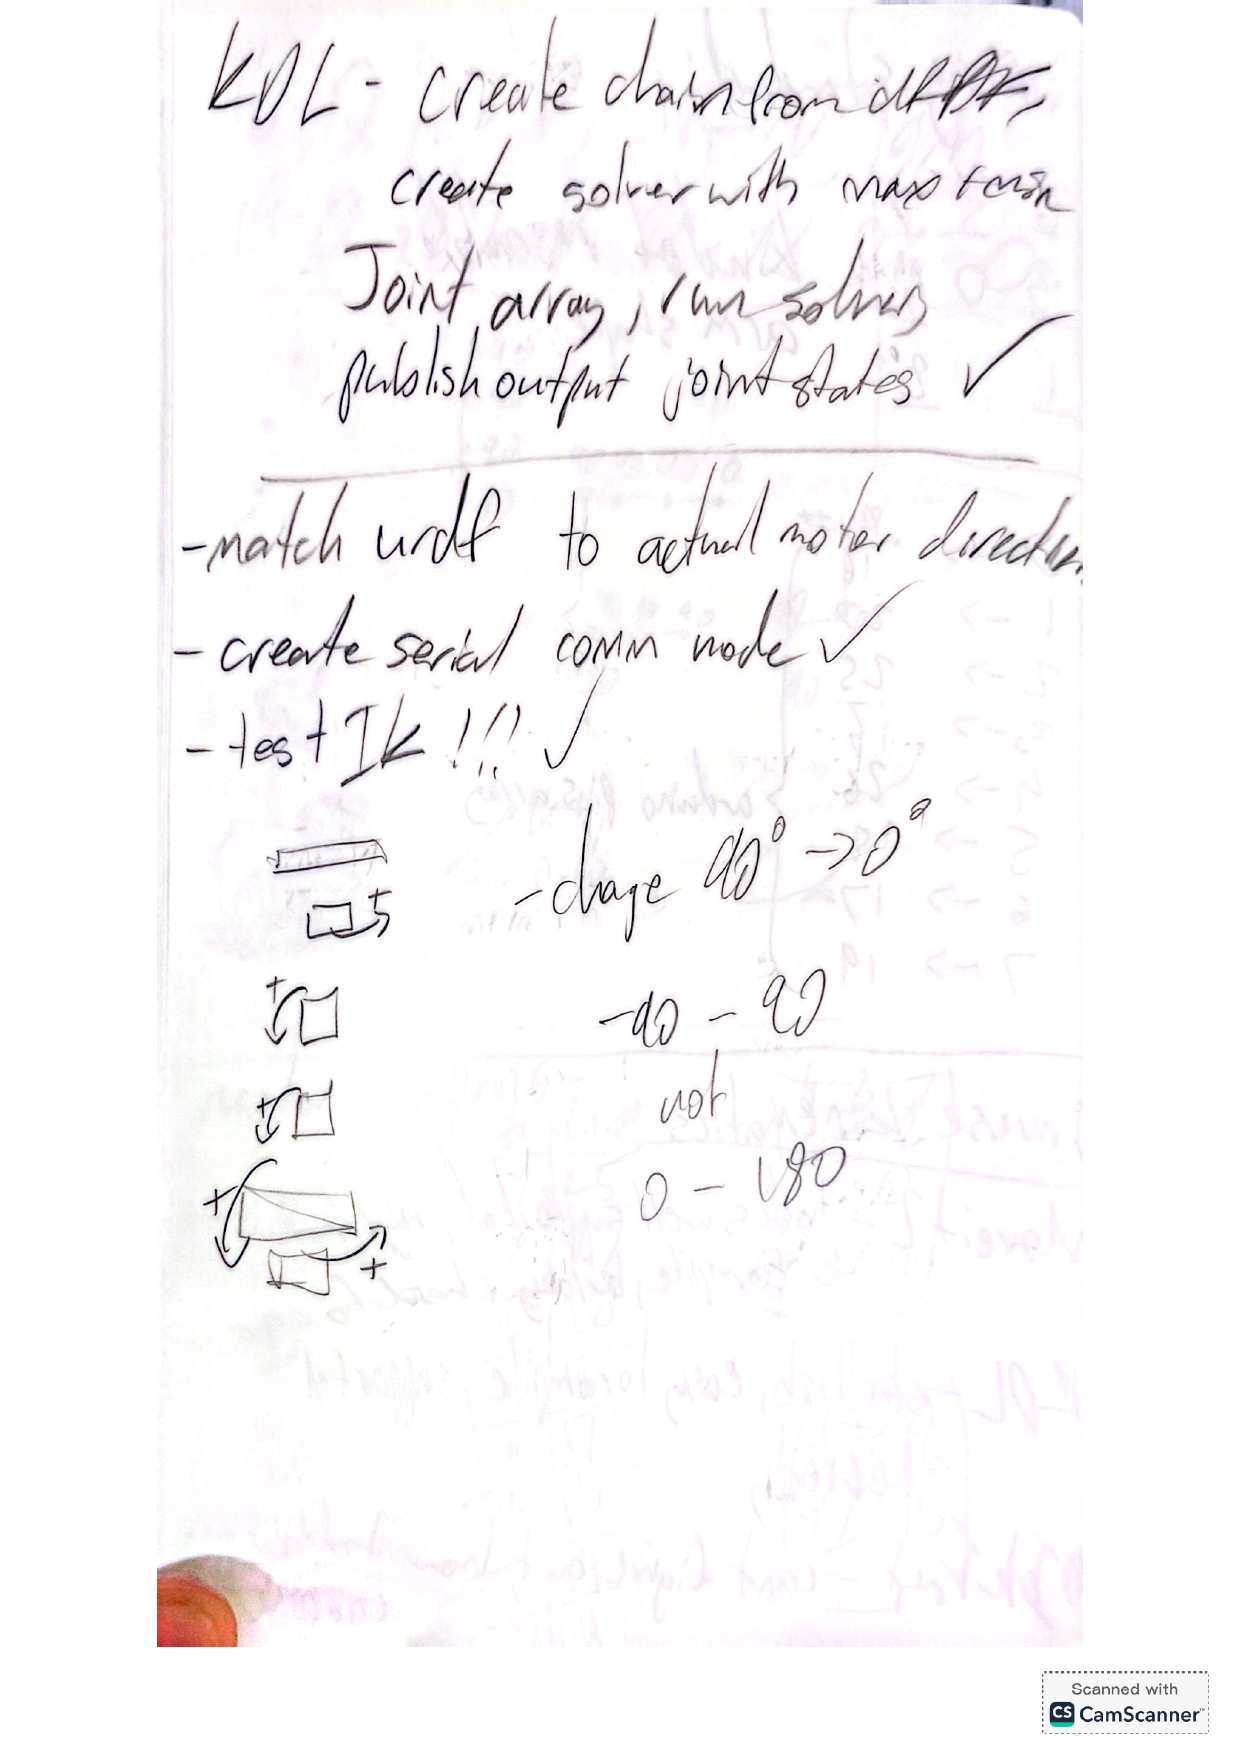 KDL - create chain from
create solver with max + min
Joint array, run solver,
publish output joint states ✓
- match urdf to actual motor direction
- create serial comm node ✓
- test Ik !!! ✓
- chage 90° -> 0°
+
+
-90 - 90
+
not
0 - 180
+
+
Scanned with
CS CamScanner